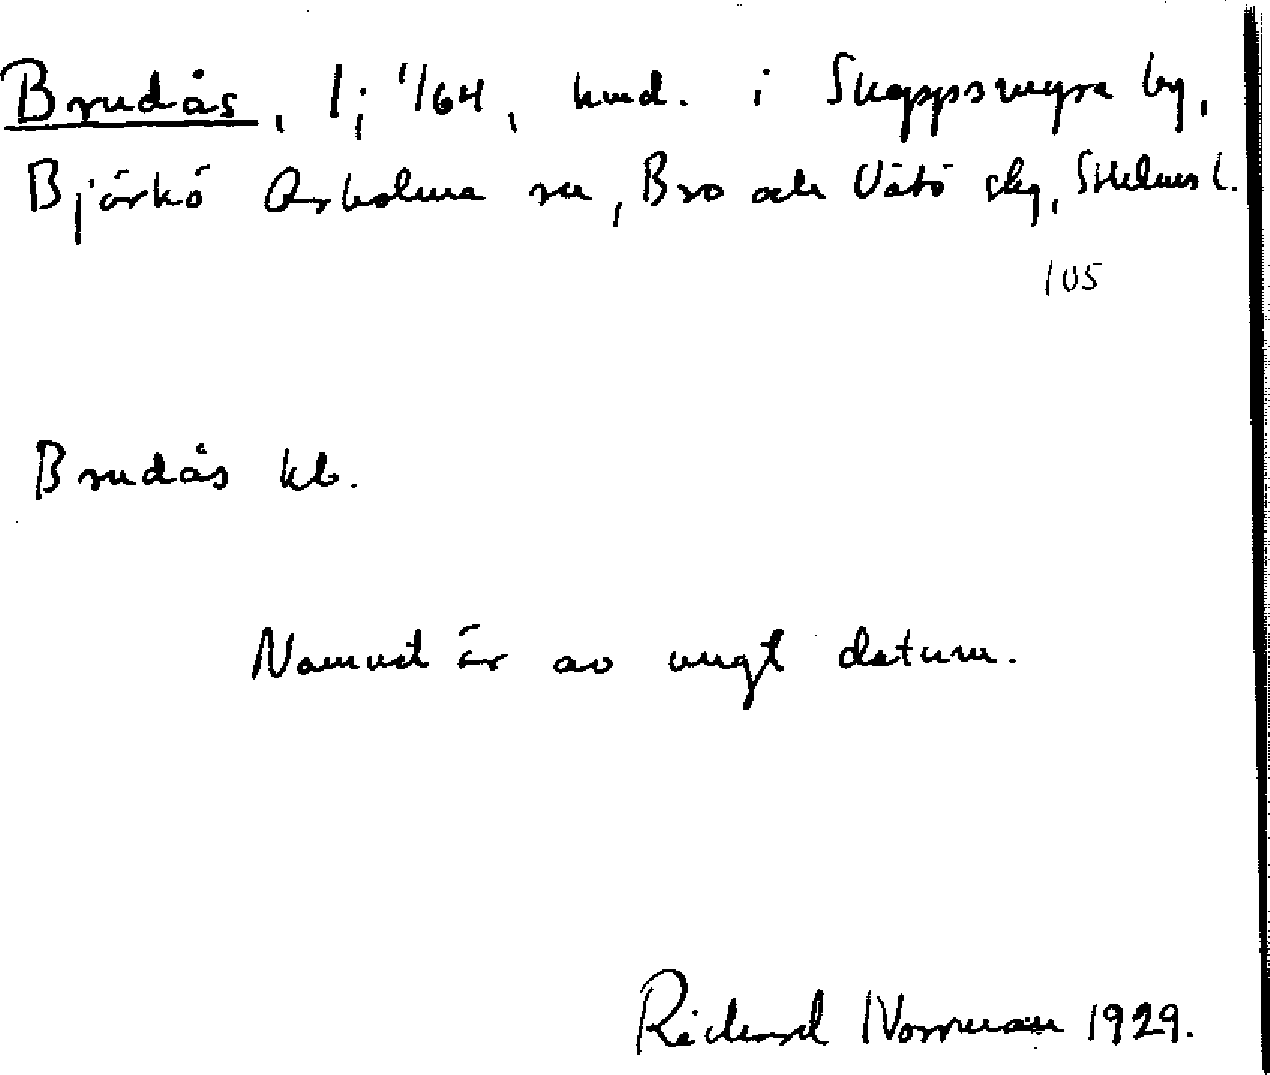 Brudås, 1; 1/64, hmd. i Skeppsmyra by,
Björkö Arholma sn, Bro och Vätö skg, Sthlms l.
105
Brudås kb.
Namnet är av ungt datum.
Rickard Norrman 1929.